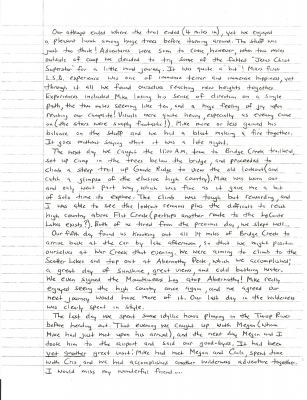 Our attempt ended where the trail ended (4 miles in), yet we enjoyed
a pleasant lunch among large trees before turning around. The stuff was
just too thick! Adventures were soon to come, however, when two miles
outside of camp we decided to try some of the fabled "Jesus Christ
Superstar" for a little mind journey. It was quite a hit! Mike's first
L.S.D. experience was one of immense terror and immense happiness, yet
through it all we found ourselves reaching new heights together.
Experiences included Mike losing his sense of direction on a single
path, the two miles seeming like ten, and a huge feeling of joy upon
reaching our campsite! Visuals were quite heavy, especially as evening came
on (the others were simply fantastic). Mike more or less gained his
balance on the stuff and we had a blast making a fire together.
It goes without saying that it was a late night.
The next day we caught the 11am, down to Bridge Creek trailhead,
set up camp in the trees below the bridge, and proceeded to
climb a steep trail up Goode Ridge to view the old lookout (and
catch a glimpse of the elusive high country). Mike was worn out
and only went part way, which was fine as it gave me a bit
of solo time to explore. The climb was tough but rewarding, and
I was able to see the lookout remains plus the difficult to reach
high country above Flat Creek (perhaps another route to the
Lake exists?). Both of us tired from the previous day, we slept well.
Our fifth day found us knocking out all 12 miles of Bridge Creek to
arrive back at the car by late afternoon, so that we might position
ourselves at War Creek that evening. We were aiming to climb to the
Scatter Lakes and tag out at Abernathy Peak, which we accomplished;
a great day of sunshine, great views and cold bathing waters.
We even signed the Mountaineers log atop Abernathy! Mike really
enjoyed seeing the high country once again and we agreed our
next journey would have more of it. Our last day in the wilderness
was clearly spent in style.
The last day we spent some idyllic hours playing in the Twisp River
before heading out. That evening we caught up with Megan (whom
Mike had just met upon his arrival), and the next day Megan and I
took him to the airport and said our good-byes. It had been
yet another great visit: Mike had met Megan and Carls, spent time
with Cris, and we had accomplished another wilderness adventure together.
I would miss my wonderful friend...